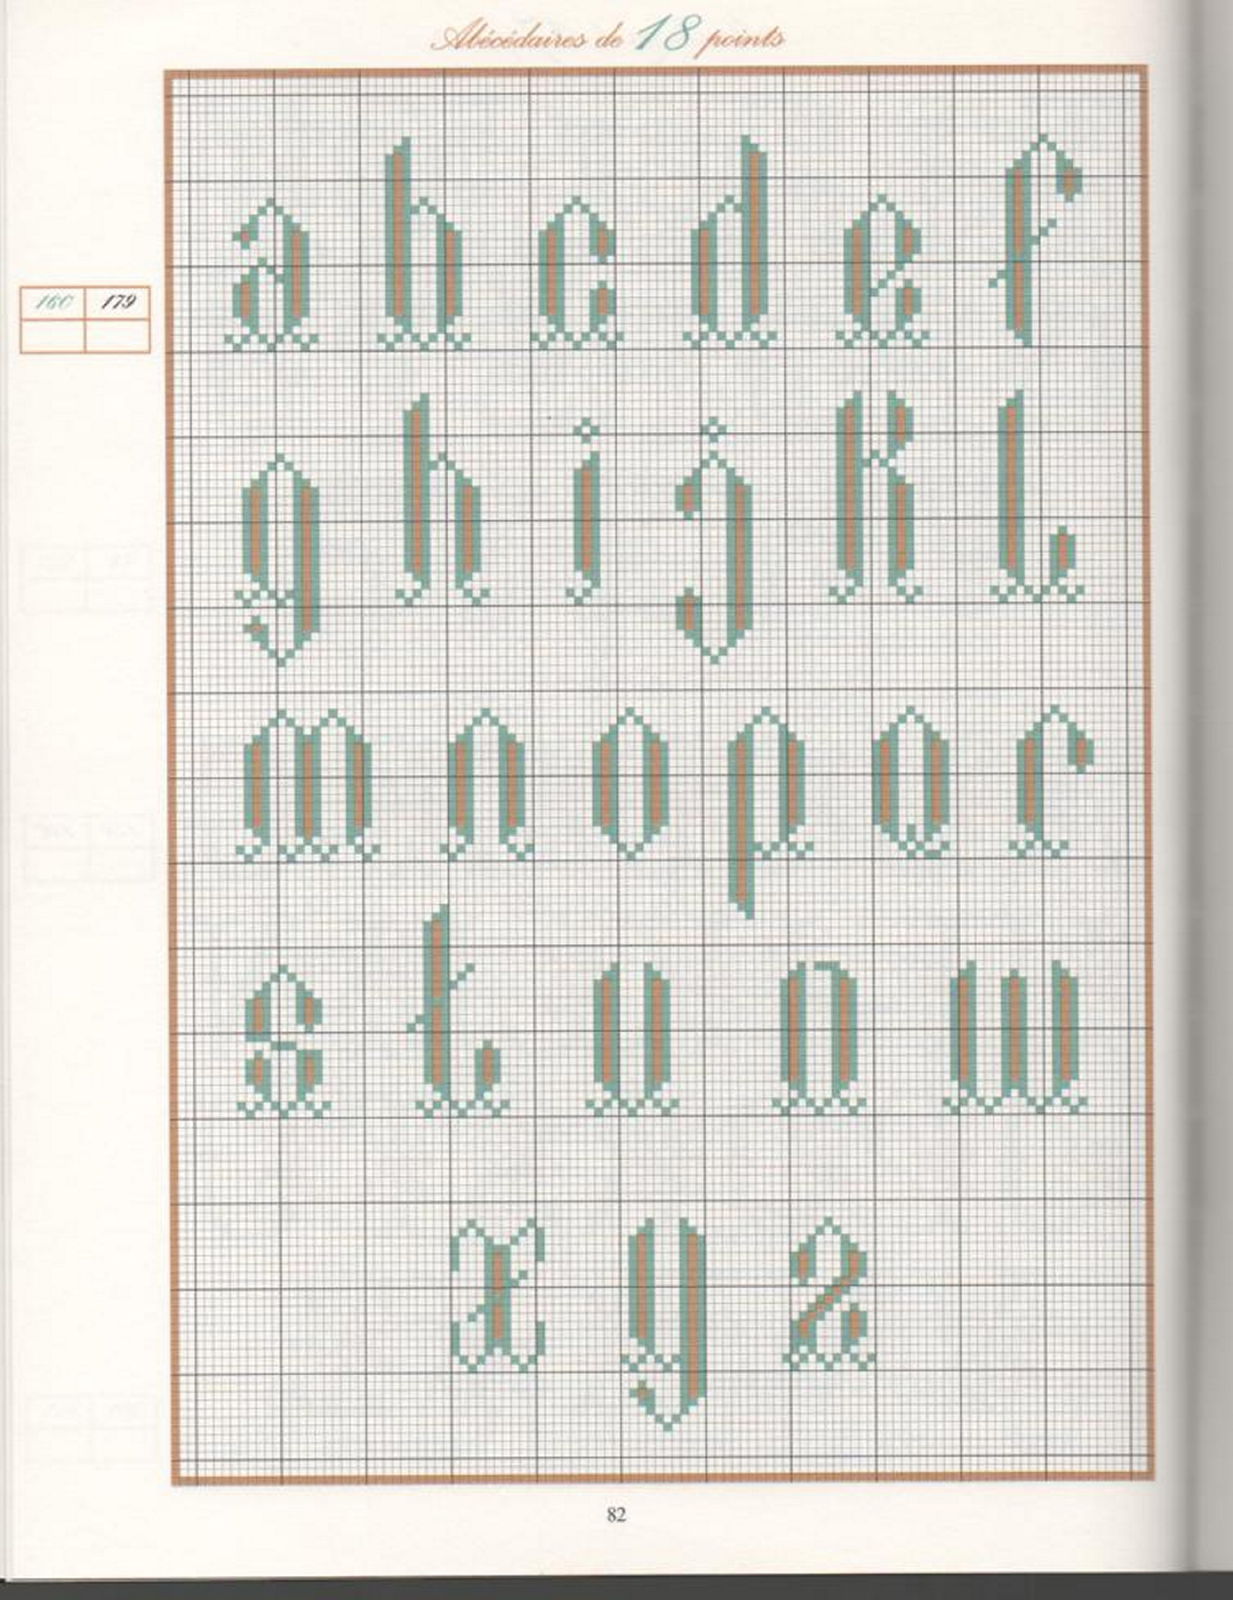 Abécédaires de 18 points
a b c d e f
160 179
g h i j k l
m n o p q r
s t u v w
x y z
82